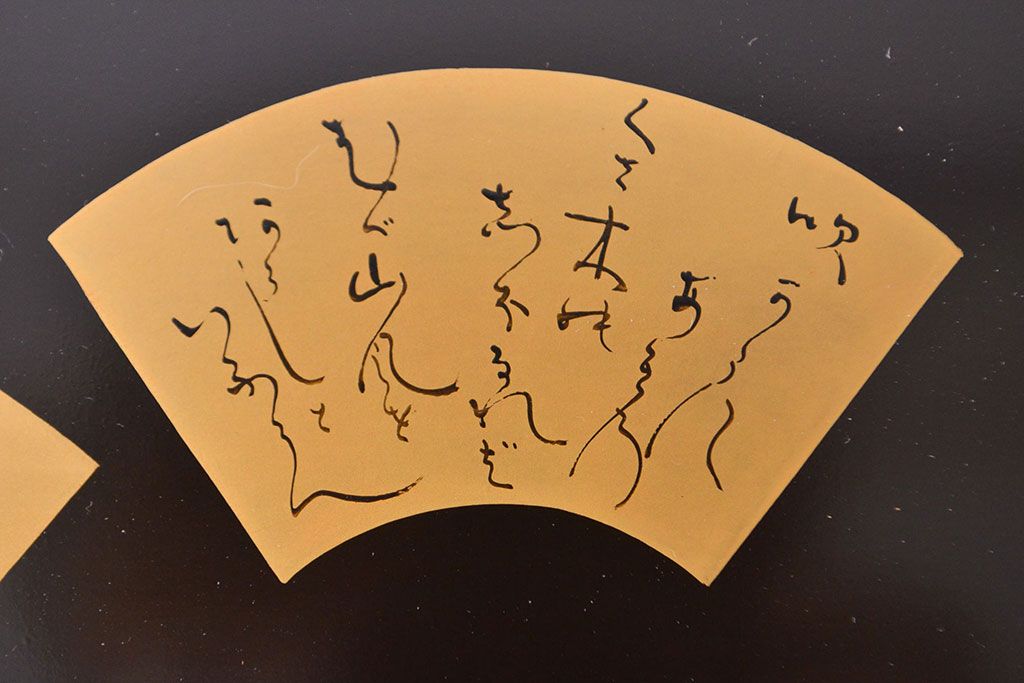 吹くからに
あきの
くさ木の
しをるれば
むべ山かぜを
あらしと
いふらむ